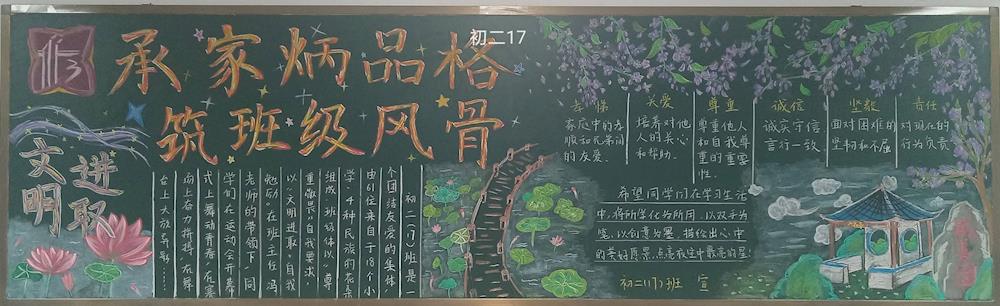 初二17
承家炳品格
筑班级风骨
文明
进取
初二(17)班是一
个团结友爱的集体
由61位来自于18个小
学、4种民族的花季
组成.班级体以“尊
重敬畏”自我要求,
以“文明进取”自我
勉励.在班主任冯
老师的带领下,同
学们在运动会开幕
式上舞动青春.在赛
场上奋力拼搏.在舞
台上大放异彩……
孝悌
家庭中的孝
顺和兄弟间
的友爱.
关爱
培养对他
人的关心
和帮助.
尊重
尊重他人
和自我尊
重的重要
性.
诚信
诚实守信
言行一致
坚毅
面对困难的
坚韧和不屈
责任
对现在的
行为负责
希望同学们在学习生活
中,将所学化为所用.以双手为
笔,以创意为墨.描绘出心中
的美好愿景.点亮夜空中最亮的星
初二(17)班 宣